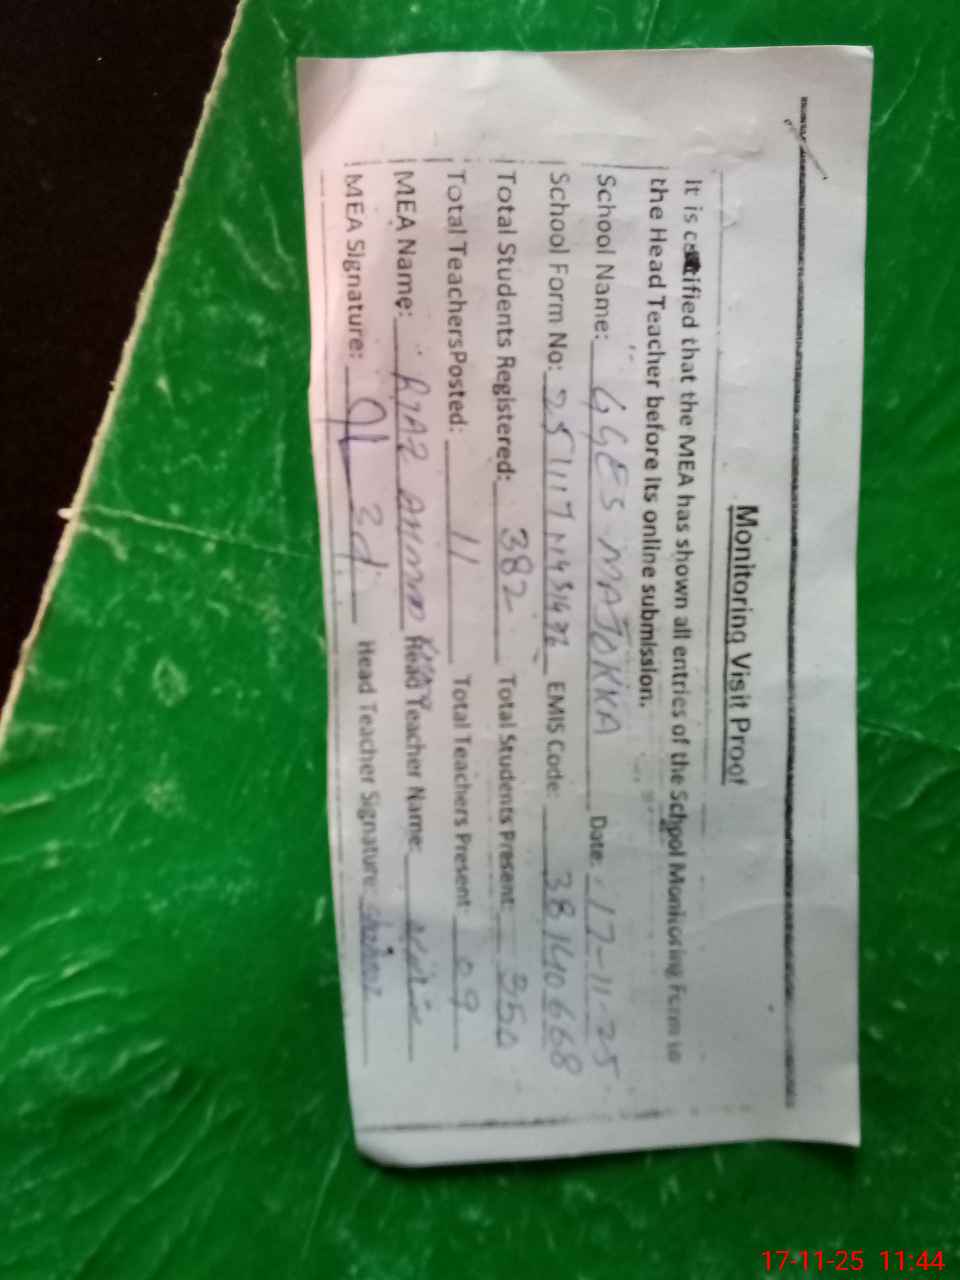 Monitoring Visit Proof
It is certified that the MEA has shown all entries of the School Monitoring Form to
the Head Teacher before its online submission.
School Name: GGES MAJOKKA Date: 17-11-25
School Form No: EMIS Code: 38140668
Total Students Registered: 382 Total Students Present: 350
Total Teachers Posted: 11 Total Teachers Present: 09
MEA Name: RIAZ AHMAD Head Teacher Name:
MEA Signature: Head Teacher Signature: Shahnaz
17-11-25 11:44